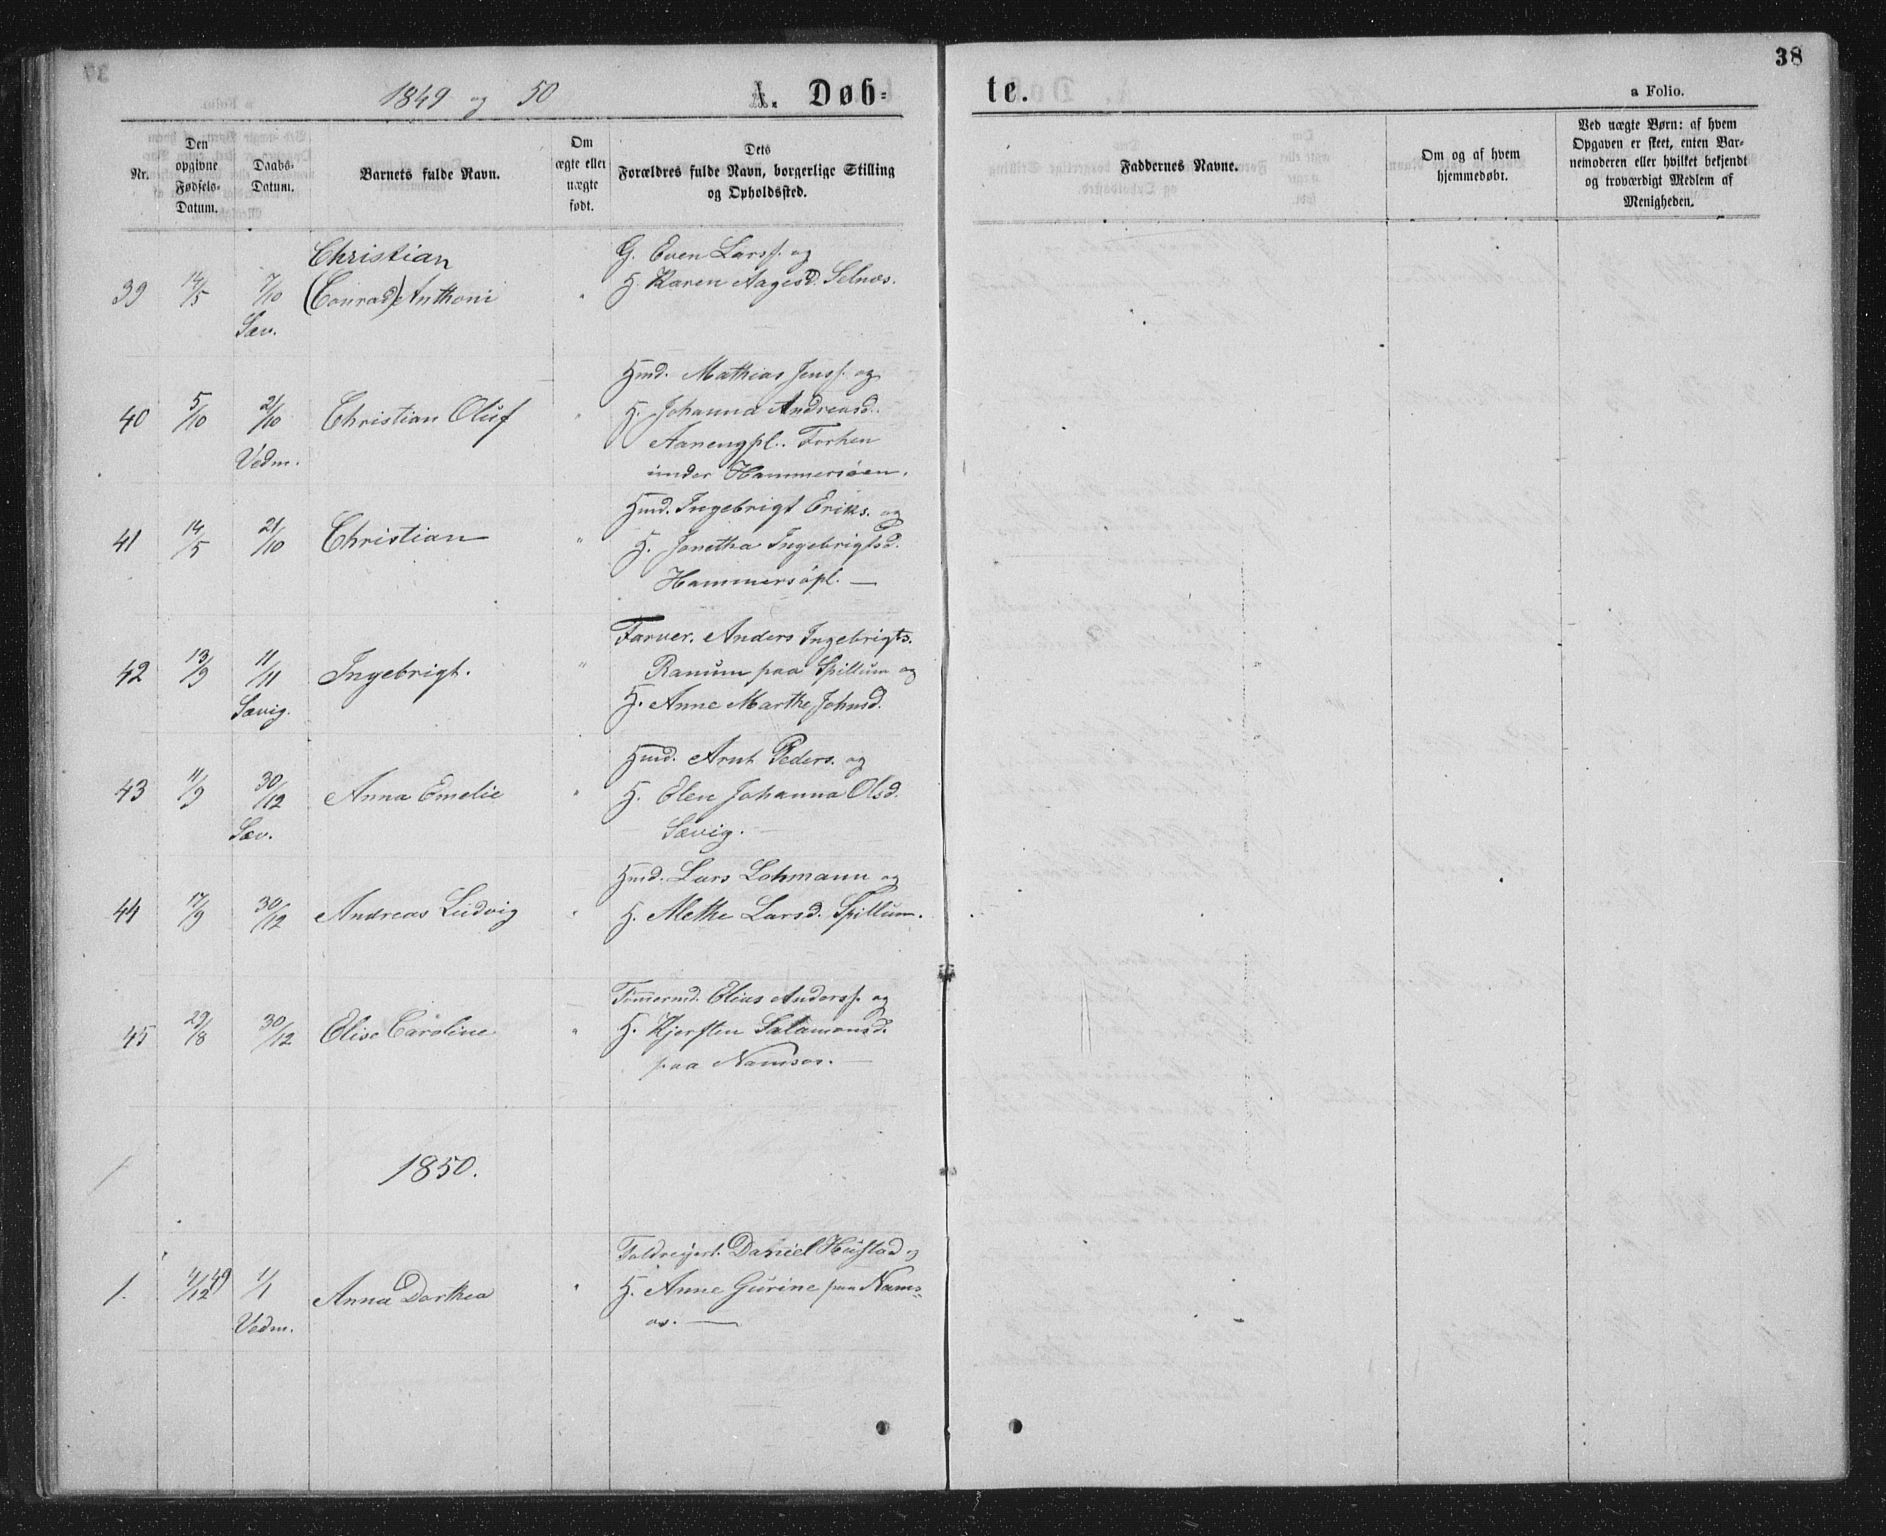 38
1849 og 50
A. Døb-
te.
a Folio.
Nr.
Den opgivne Fødsels-Datum.
Daabs-Datum.
Barnets fulde Navn.
Om ægte eller uægte født.
Dets Forældres fulde Navn, borgerlige Stilling og Opholdssted.
Faddernes Navne.
Om og af hvem hjemmedøbt.
Ved uægte Børn: af hvem Opgaven er skeet, enten Barnemoderen eller hvilket bekjendt og troværdigt Medlem af Menigheden.
Christian
G. Even Larss. og
39 14/5 7/10 (Conrad) Anthoni " H. Karen Aagesd. Selnæs.
Sæv.
Hmd. Mathias Jenss. og
40 5/10 21/10 Christian Oluf " H. Johanna Andreasd.
Vedm.
Aanengpl. Forhen
under Hammersøen.
Hmd. Ingebrigt Eriks. og
41 14/5 21/10 Christian " H. Jonetha Ingebrigtsd.
Hammersøpl. —
Farver. Anders Ingebrigts.
42 13/9 11/11 Ingebrigt. " Ranum paa Spillum og
Sævig.
H. Anne Marthe Johnsd.
Hmd. Arnt Peders. og
43 11/9 30/12 Anna Emelie " H. Elen Johanna Olsd.
Sæv.
Sævig.
Hmd. Lars Lohmann og
44 17/9 30/12 Andreas Ludvig " H. Alethe Larsd. Spillum.
Tømermd. Elias Anderss. og
45 29/8 30/12 Elise Caroline " H. Kjersten Salamonsd.
paa Namsos. —
1850.
Toldreyert. Daniel Hustad og
1. 4/12 49 1/1 Anna Dorthea " H. Anne Gurine paa Nams-
Vedm.
os. —